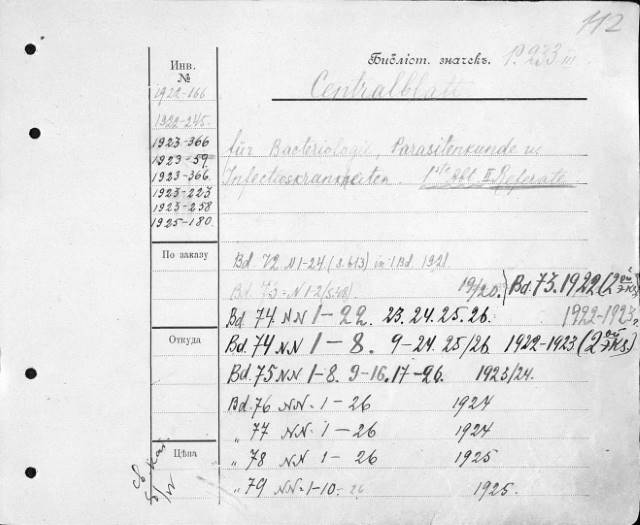 112
Библіот. значекъ. P. 233 III
Инв.
№
Centralblatt
1922-166
1922-245
1923-366
1923-59
1923-366
1923-223
1923-258
1925-180
für Bacteriologie, Parasitenkunde u.
Infectioskrankheiten. 1ste Abt. II Referate
По заказу
Bd. 72 N 1-24 (S. 613) in 1 Bd. 1921
Bd. 73 = N 1-2 19/20. } Bd. 73. 1922 (2ой экз.)
Bd. 74 NN 1-22. 23. 24. 25. 26. 1922-1923 г.
Откуда
Bd. 74 NN 1-8. 9-24. 25/26 1922-1923 (2ой экз.)
Bd. 75 NN 1-8. 9-16. 17-26. 1923/24.
Bd. 76 NN. 1-26 1924
„ 77 NN. 1-26 1924
Цѣна
„ 78 NN 1-26 1925
„ 79 NN. 1-10-26 1925.